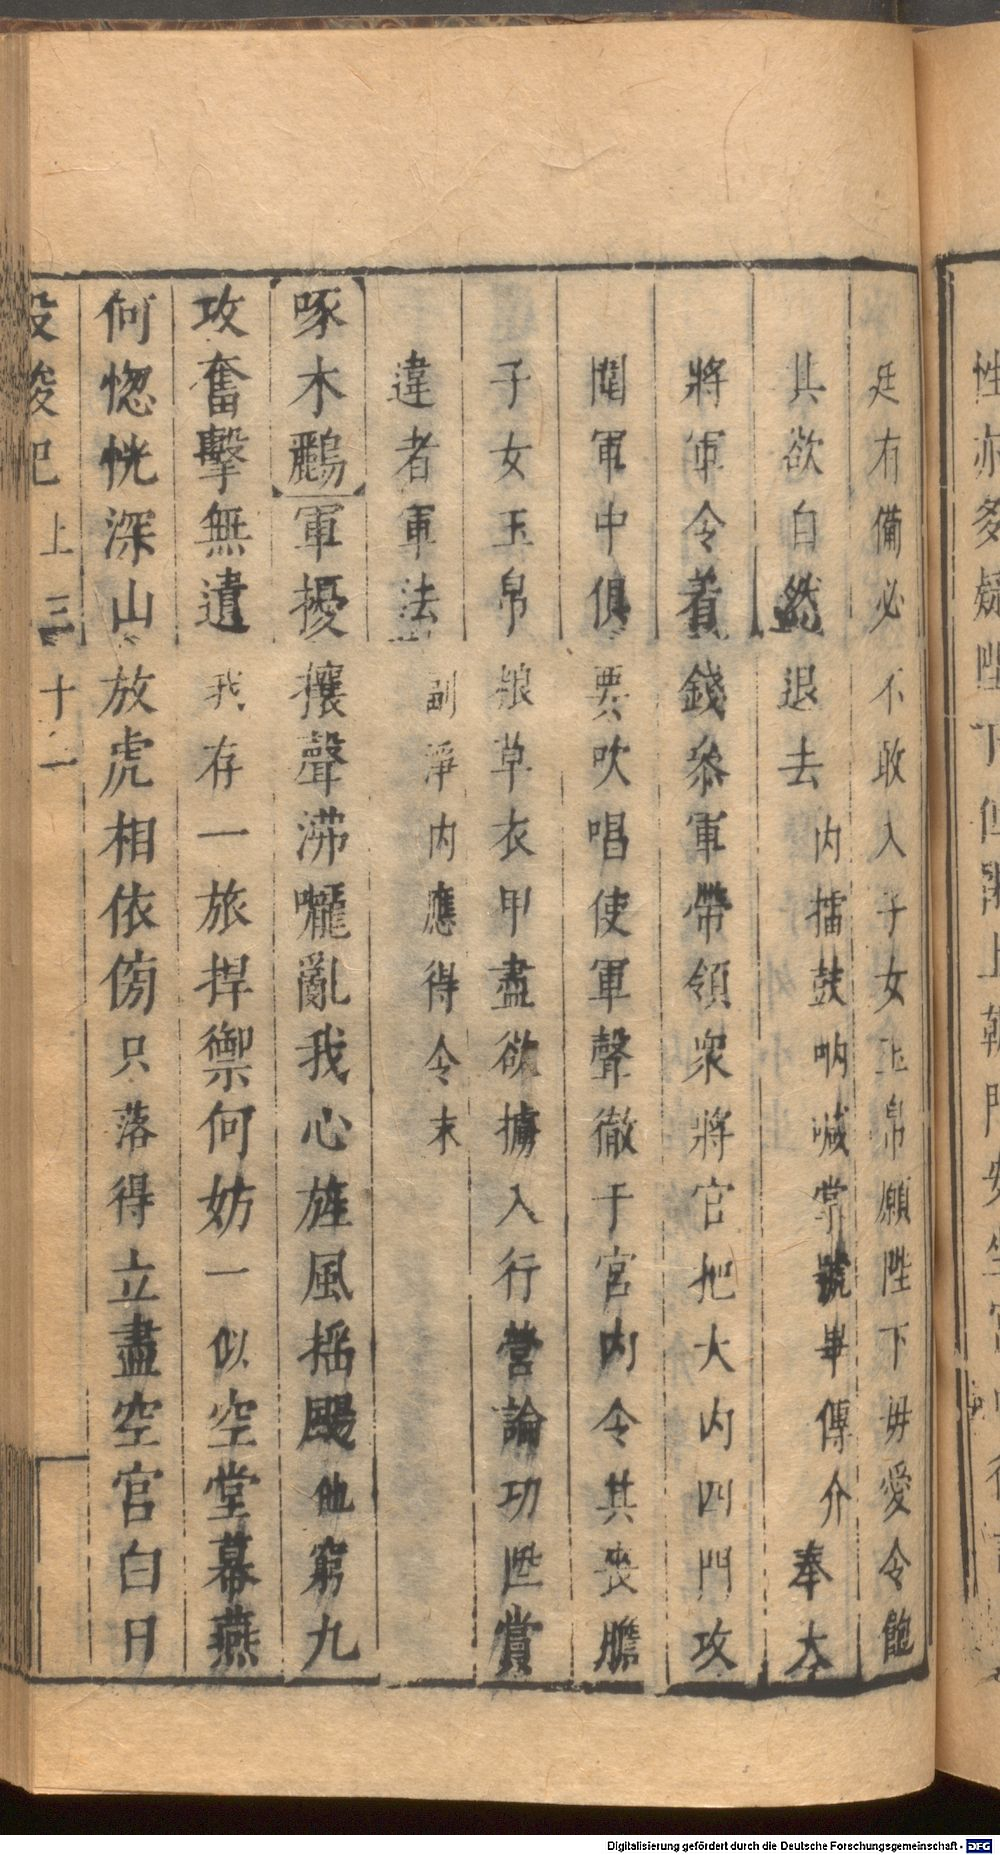 廷有備必不敢入子女玉帛願陛下毋愛令飽
其欲自然退去內擂鼓吶喊掌號畢傳介奉大
將軍令着錢叅軍帶領衆將官把大內四門攻
圍軍中俱要吹唱使軍聲徹于宮內令其喪膽
子女玉帛粮草衣甲盡欲擄入行營論功陞賞
違者軍法副淨內應得令末
啄木鸝軍擾攘聲沸嚨亂我心旌風揺颺他窮九
攻奮擊無遺我存一旅捍禦何妨一似空堂幕燕
何惚恍深山放虎相依傍只落得立盡空宮白日
上三十二
Digitalisierung gefördert durch die Deutsche Forschungsgemeinschaft - DFG